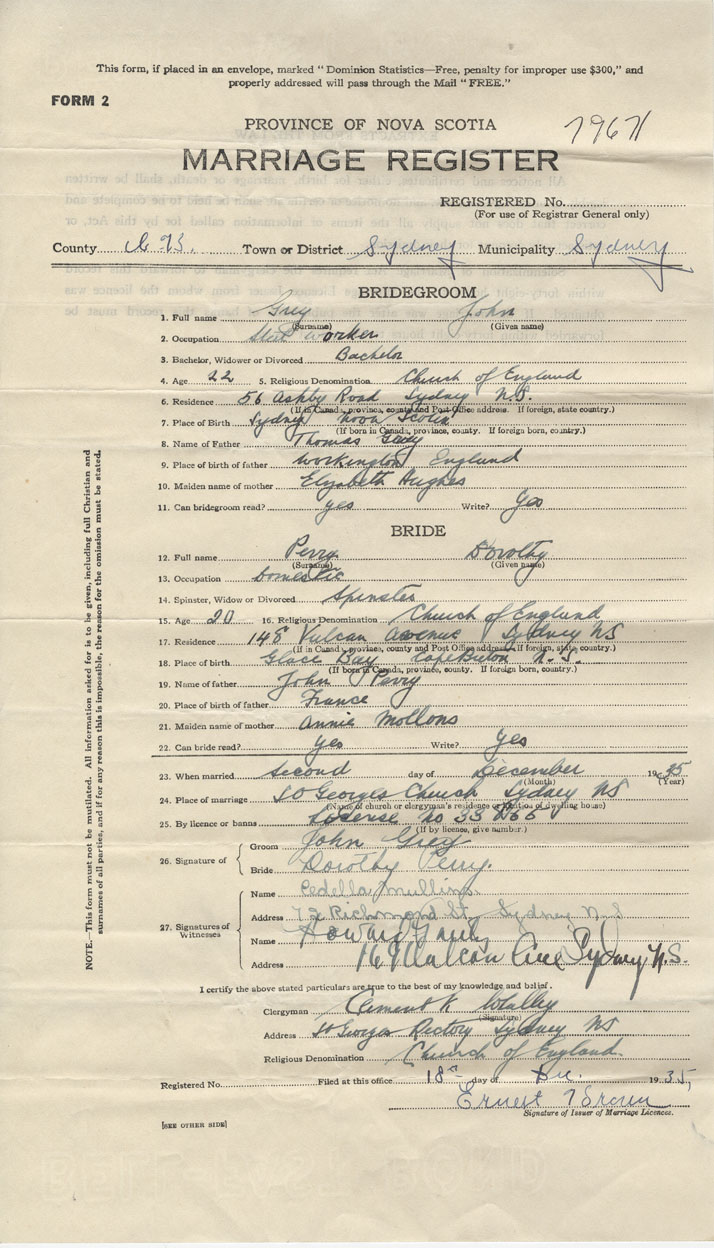 This form, if placed in an envelope, marked "Dominion Statistics—Free, penalty for improper use $300," and
properly addressed will pass through the Mail "FREE."
FORM 2
PROVINCE OF NOVA SCOTIA
7967
MARRIAGE REGISTER
REGISTERED No.
(For use of Registrar General only)
County C. B. Town or District Sydney Municipality Sydney
BRIDEGROOM
1. Full name Grey John
(Surname) (Given name)
2. Occupation Steel worker
3. Bachelor, Widower or Divorced Bachelor
4. Age 22 5. Religious Denomination Church of England
6. Residence 56 Ashby Road Sydney N.S.
(If in Canada, province, county and Post Office address. If foreign, state country.)
7. Place of Birth Sydney Nova Scotia
(If born in Canada, province, county. If foreign born, country.)
8. Name of Father Thomas
9. Place of birth of father Workington England
10. Maiden name of mother Elyzabeth Hughes
11. Can bridegroom read? yes Write? yes
BRIDE
12. Full name Perry Dorothy
(Surname) (Given name)
13. Occupation Domestic
14. Spinster, Widow or Divorced Spinster
15. Age 20 16. Religious Denomination Church of England
17. Residence 148 Vulcan Avenue Sydney NS
(If in Canada, province, county and Post Office address. If foreign, state country.)
18. Place of birth Glace Bay Cape Breton N.S.
(If born in Canada, province, county. If foreign born, country.)
19. Name of father John Perry
20. Place of birth of father France
21. Maiden name of mother Annie Mollons
22. Can bride read? yes Write? yes
23. When married Second day of December 1935
(Month) (Year)
24. Place of marriage St Georges Church Sydney NS
(Name of church or clergyman's residence or location of dwelling house)
25. By licence or banns no
(If by licence, give number.)
26. Signature of
Groom John Grey
Bride Dorothy Perry.
27. Signatures of
Witnesses
Name Cedella Mullins
Address 72 Richmond St. Sydney N S
Name Howard
Address Vulcan Ave Sydney N.S.
I certify the above stated particulars are true to the best of my knowledge and belief.
Clergyman Clement
(Signature)
Address St Georges Rectory Sydney NS
Religious Denomination Church of England
Registered No. Filed at this office 18 day of Dec. 1935,
Ernest Brown
Signature of Issuer of Marriage Licences.
[SEE OTHER SIDE]
NOTE.—This form must not be mutilated. All information asked for is to be given, including full Christian and
surnames of all parties, and if for any reason this is impossible, the reason for the omission must be stated.